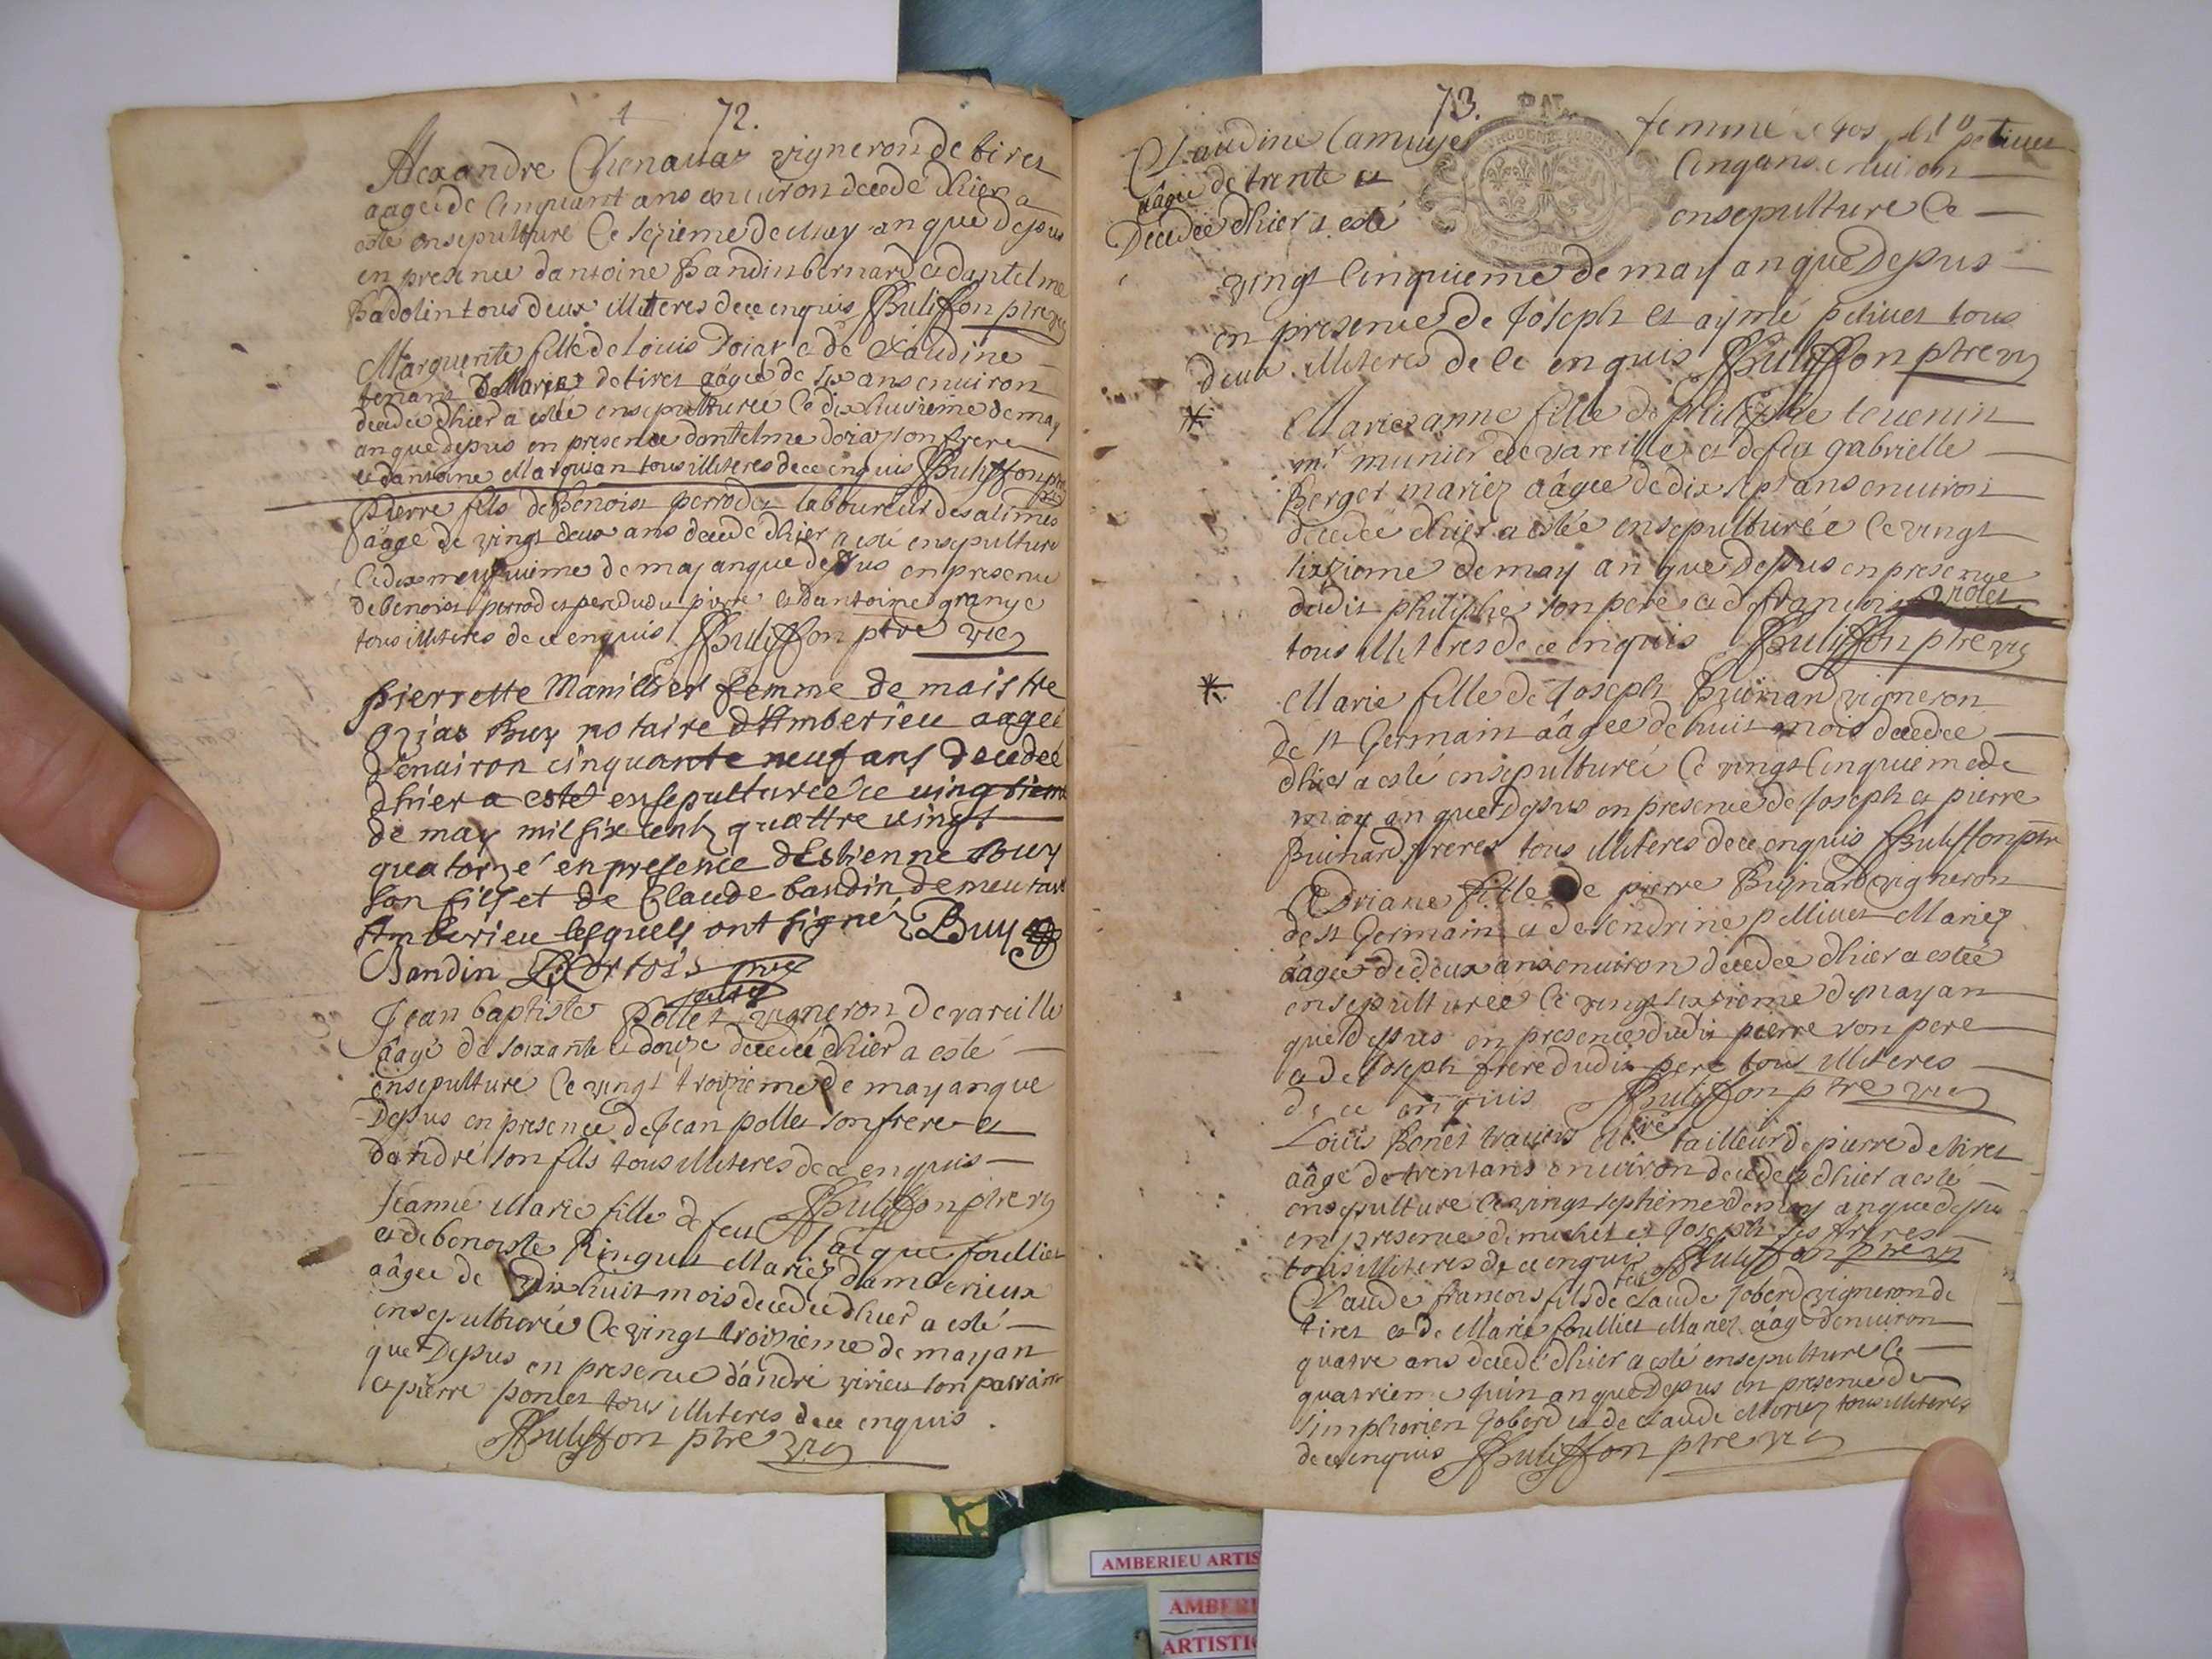 72.
Alexandre Chenauaz vigneron de tiret
aagé de Cinquant ans enuiron decede dhier a
esté ensepulturé Ce sezieme de may an que dessus
en presence dantoine bandin bernard et dantelme
badolin tous deux illiteres de ce enquis Buliffon ptre vic
Marguerite fille de Louis Doiat et de Claudine
Mariez de tiret aagée de six ans enuiron
decedee dhier a esté ensepulturee Ce dix huitieme de may
an que dessus en presence dantelme doiat son frere
et dantoine Marquisan tous illiteres de ce enquis Buliffon ptre
vic
Pierre fils de Benoist perrodet laboureur des alimes
aâgé de vingt deux ans decedé dhier a esté ensepulturé
Ce dix neufuieme de may an que dessus en presence
de benoist perrodet pere dudit pierre et dantoine grange
tous illiteres de ce enquis Buliffon ptre vic
pierrette Manillier femme de maistre
ozias Buy notaire d'Amberieu aagee
denuiron cinquante neuf ans decedee
dhier a esté ensepulturee ce uingtiem
de may mil six cents quattre uingt
quatorze en presence dEstienne Buy
son fils et de Claude bandin demeurant
Amberieu lesquels ont signé Buy
Bandin
Jean baptiste pollet vigneron de vareille
âagé de soixante et douze decedé dhier a esté
ensepulturé Ce vingt troizieme de may an que
Dessus en presence de Jean pollet son frere et
dandré son fils tous illiteres de ce enquis
Buliffon ptre vic
Jeanne Marie fille de feu Jacque foulliet
et de benoiste Ringuet Mariez damberieux
aâgee de dix huit mois decedeé dhier a esté
ensepulturée Ce vingt troizieme de may an
que Dessus en presence dandré virieu son parrain
et pierre poncet tous illiteres de ce enquis.
Buliffon ptre vic
73.
Claudine Camuset femme petiuet
aâgee de trente et Cinq ans enuiron
Decedée dhier a esté ensepulture Ce
vingt Cinquieme de may an que Dessus
en presence de Joseph et aymé petiuet tous
deux illiteres de ce enquis Buliffon ptre vic
* Marie anne fille de philiphe teuenin
mr munier de vareille et de gabrielle
Berget mariez aâgée de dix sept ans enuiron
decedeé dhier a esté ensepulturée Ce vingt
sixzieme de may an que Dessus en presence
dudit philiphe son pere et de françois violet
tous illiteres de ce enquis Buliffon ptre vic
* Marie fille de Joseph buinand vigneron
de st Germain aâgee de huit mois decedee
dhier a esté ensepulturée Ce vingt Cinquieme de
may an que Dessus en presence de Joseph et pierre
buinand freres tous illiteres de ce enquis Buliffon ptre
Adriane fille de pierre Buynand vigneron
de st Germain et de sendrine pettiuet Mariez
aâgee de deux ans enuiron decedee dhier a esteé
ensepulturée Ce vingt sixzieme de may an
que Dessus en presence dudit pierre son pere
et de Joseph frere dudit pere tous illiteres
de ce enquis Buliffon ptre vic
Louis Benet tailleur de pierre de tiret
aâgé de trent ans enuiron decedé dhier a esté
ensepulture Ce vingt septieme de may an que dessus
en presence de michel et Joseph ses freres
tous illiteres de ce enquis Buliffon ptre vic
Claude francois fils de Claude Joberd vigneron de
tiret et de Marie foulliet Mariez aâgé denuiron
quatre ans decedé dhier a esté ensepulture Ce
quatrieme Juin an que Dessus en presence de
Simphorien Joberd et de Claude Moriez tous illiteres
de ce enquis Buliffon ptre vic
AMBERIEU ARTIS
AMBERI
ARTISTI